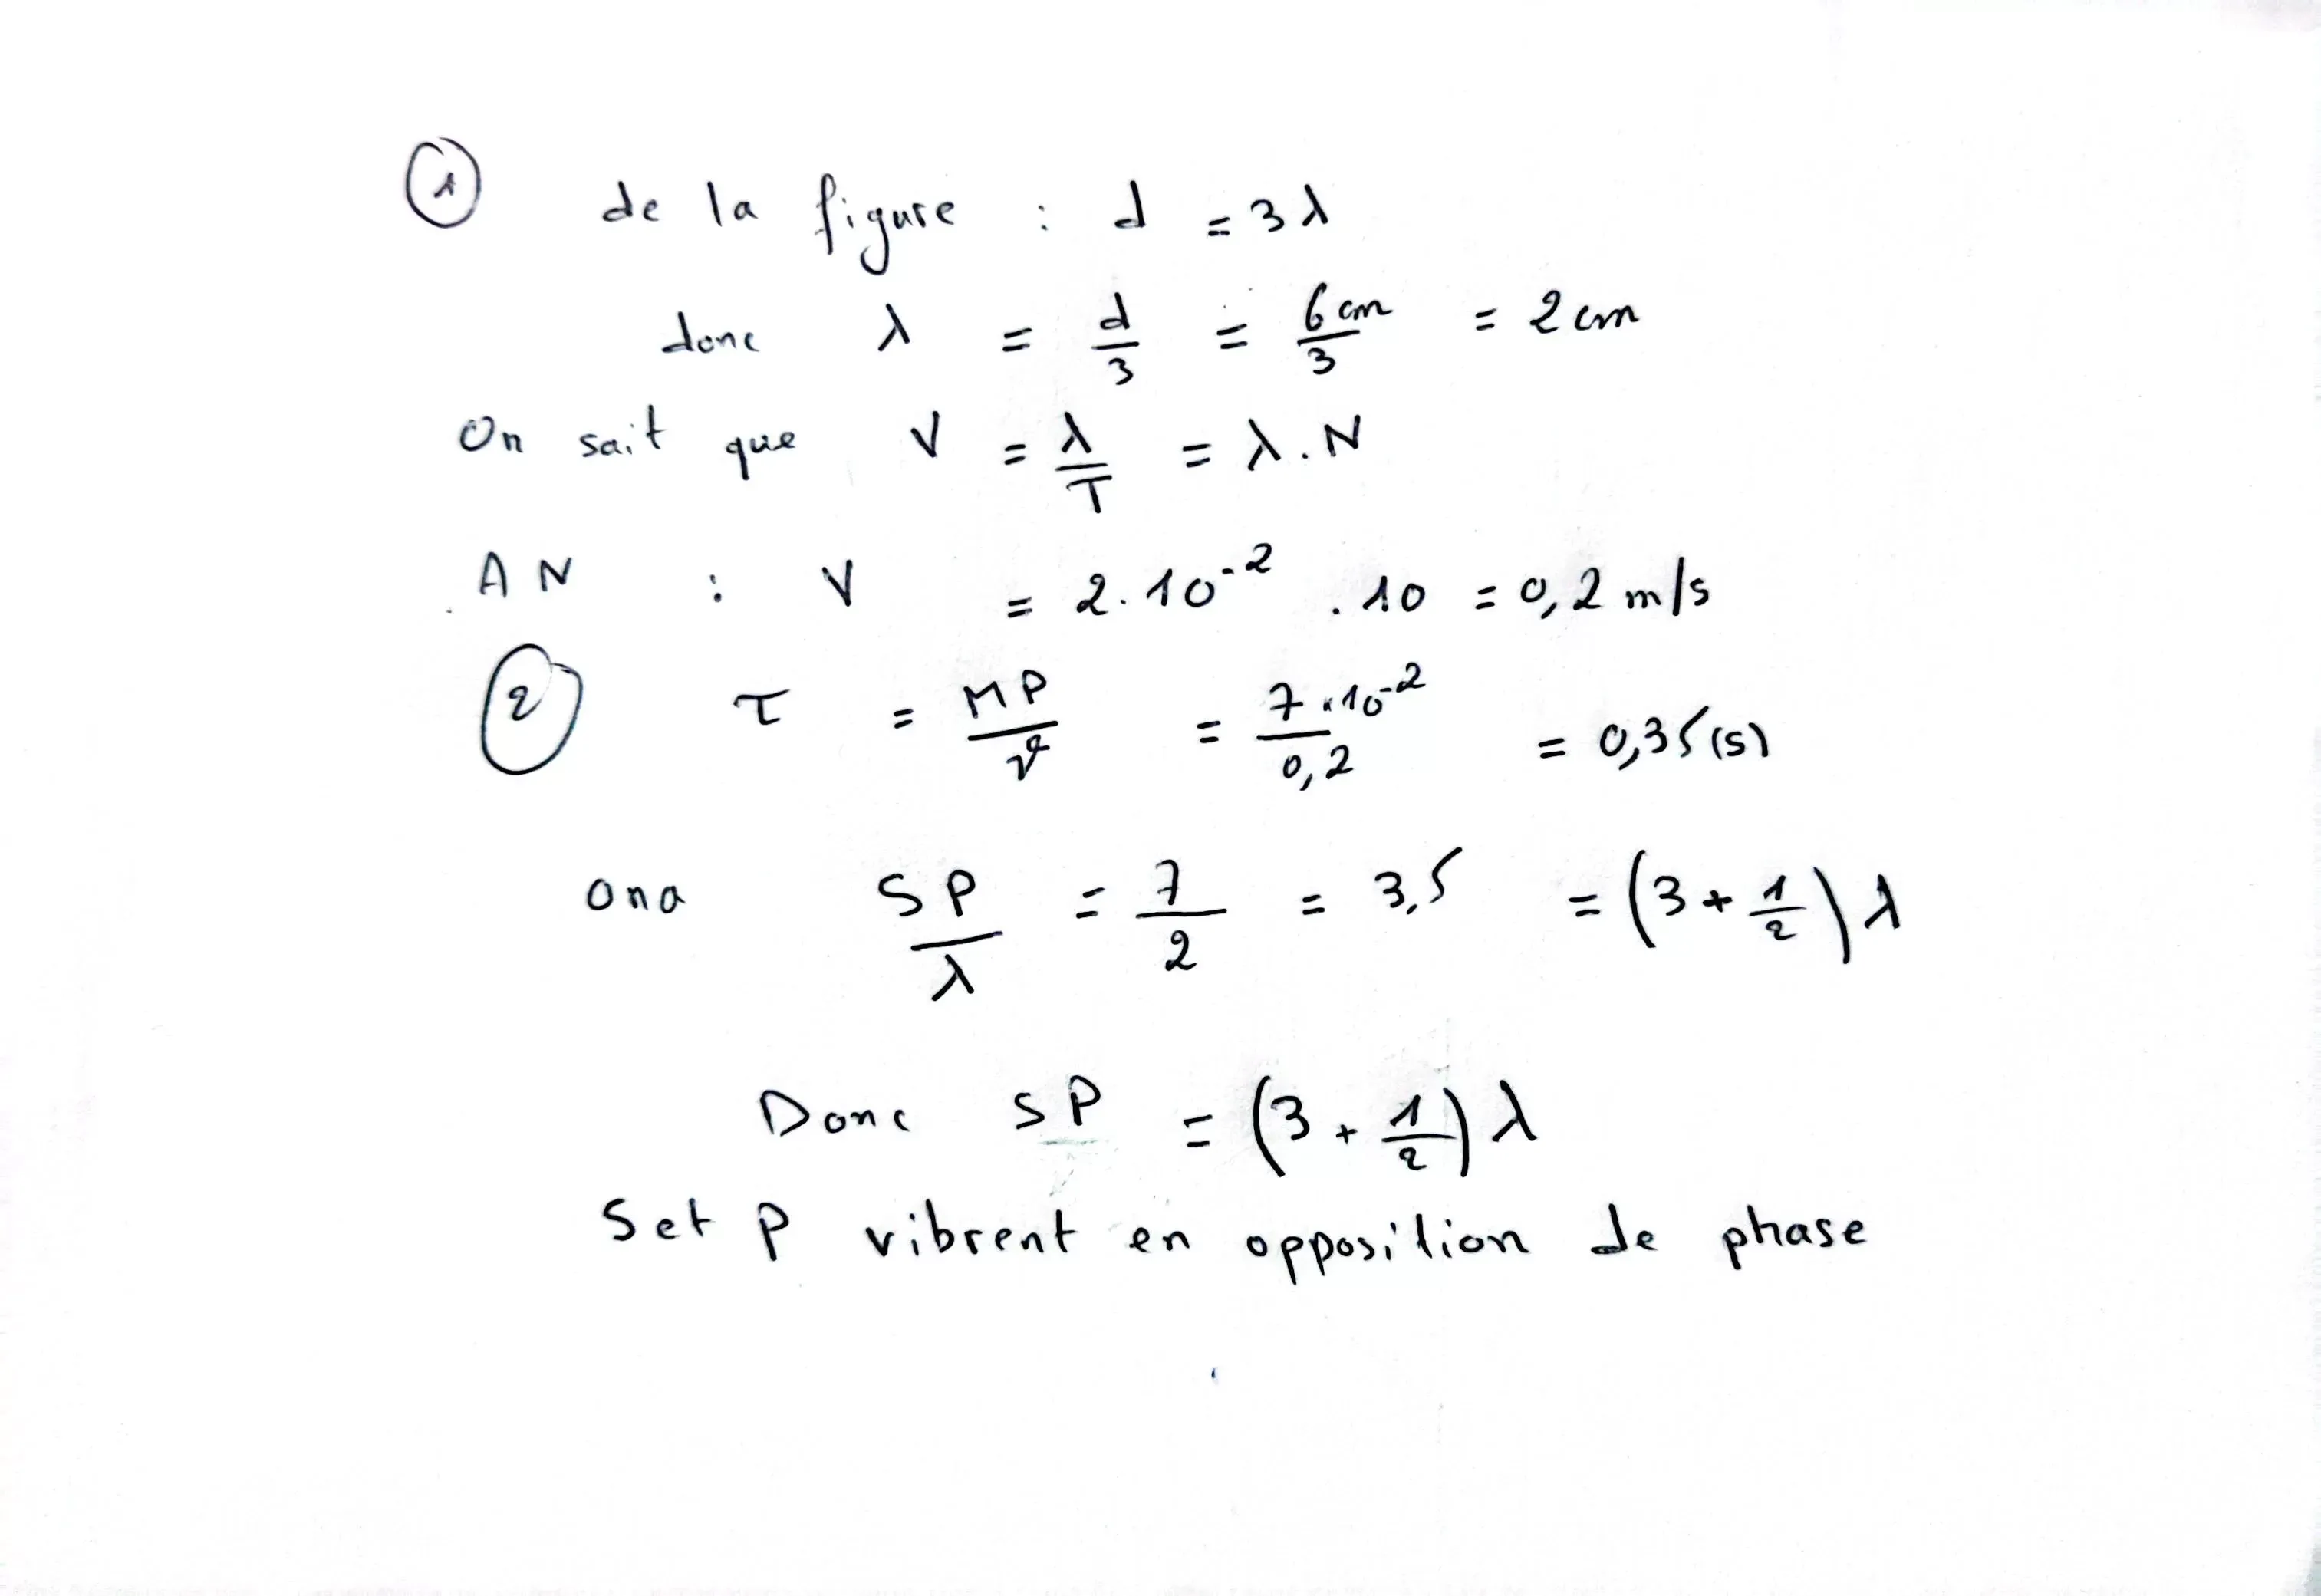 ① de la figure : d = 3λ
donc λ = d/3 = 6cm/3 = 2cm
On sait que V = λ/T = λ.N
AN : V = 2.10⁻² .10 = 0,2 m/s
② τ = MP/v = 7×10⁻²/0,2 = 0,35(s)
ona SP/λ = 7/2 = 3,5 = (3+1/2)λ
Donc SP = (3+1/2)λ
Set P vibrent en opposition de phase